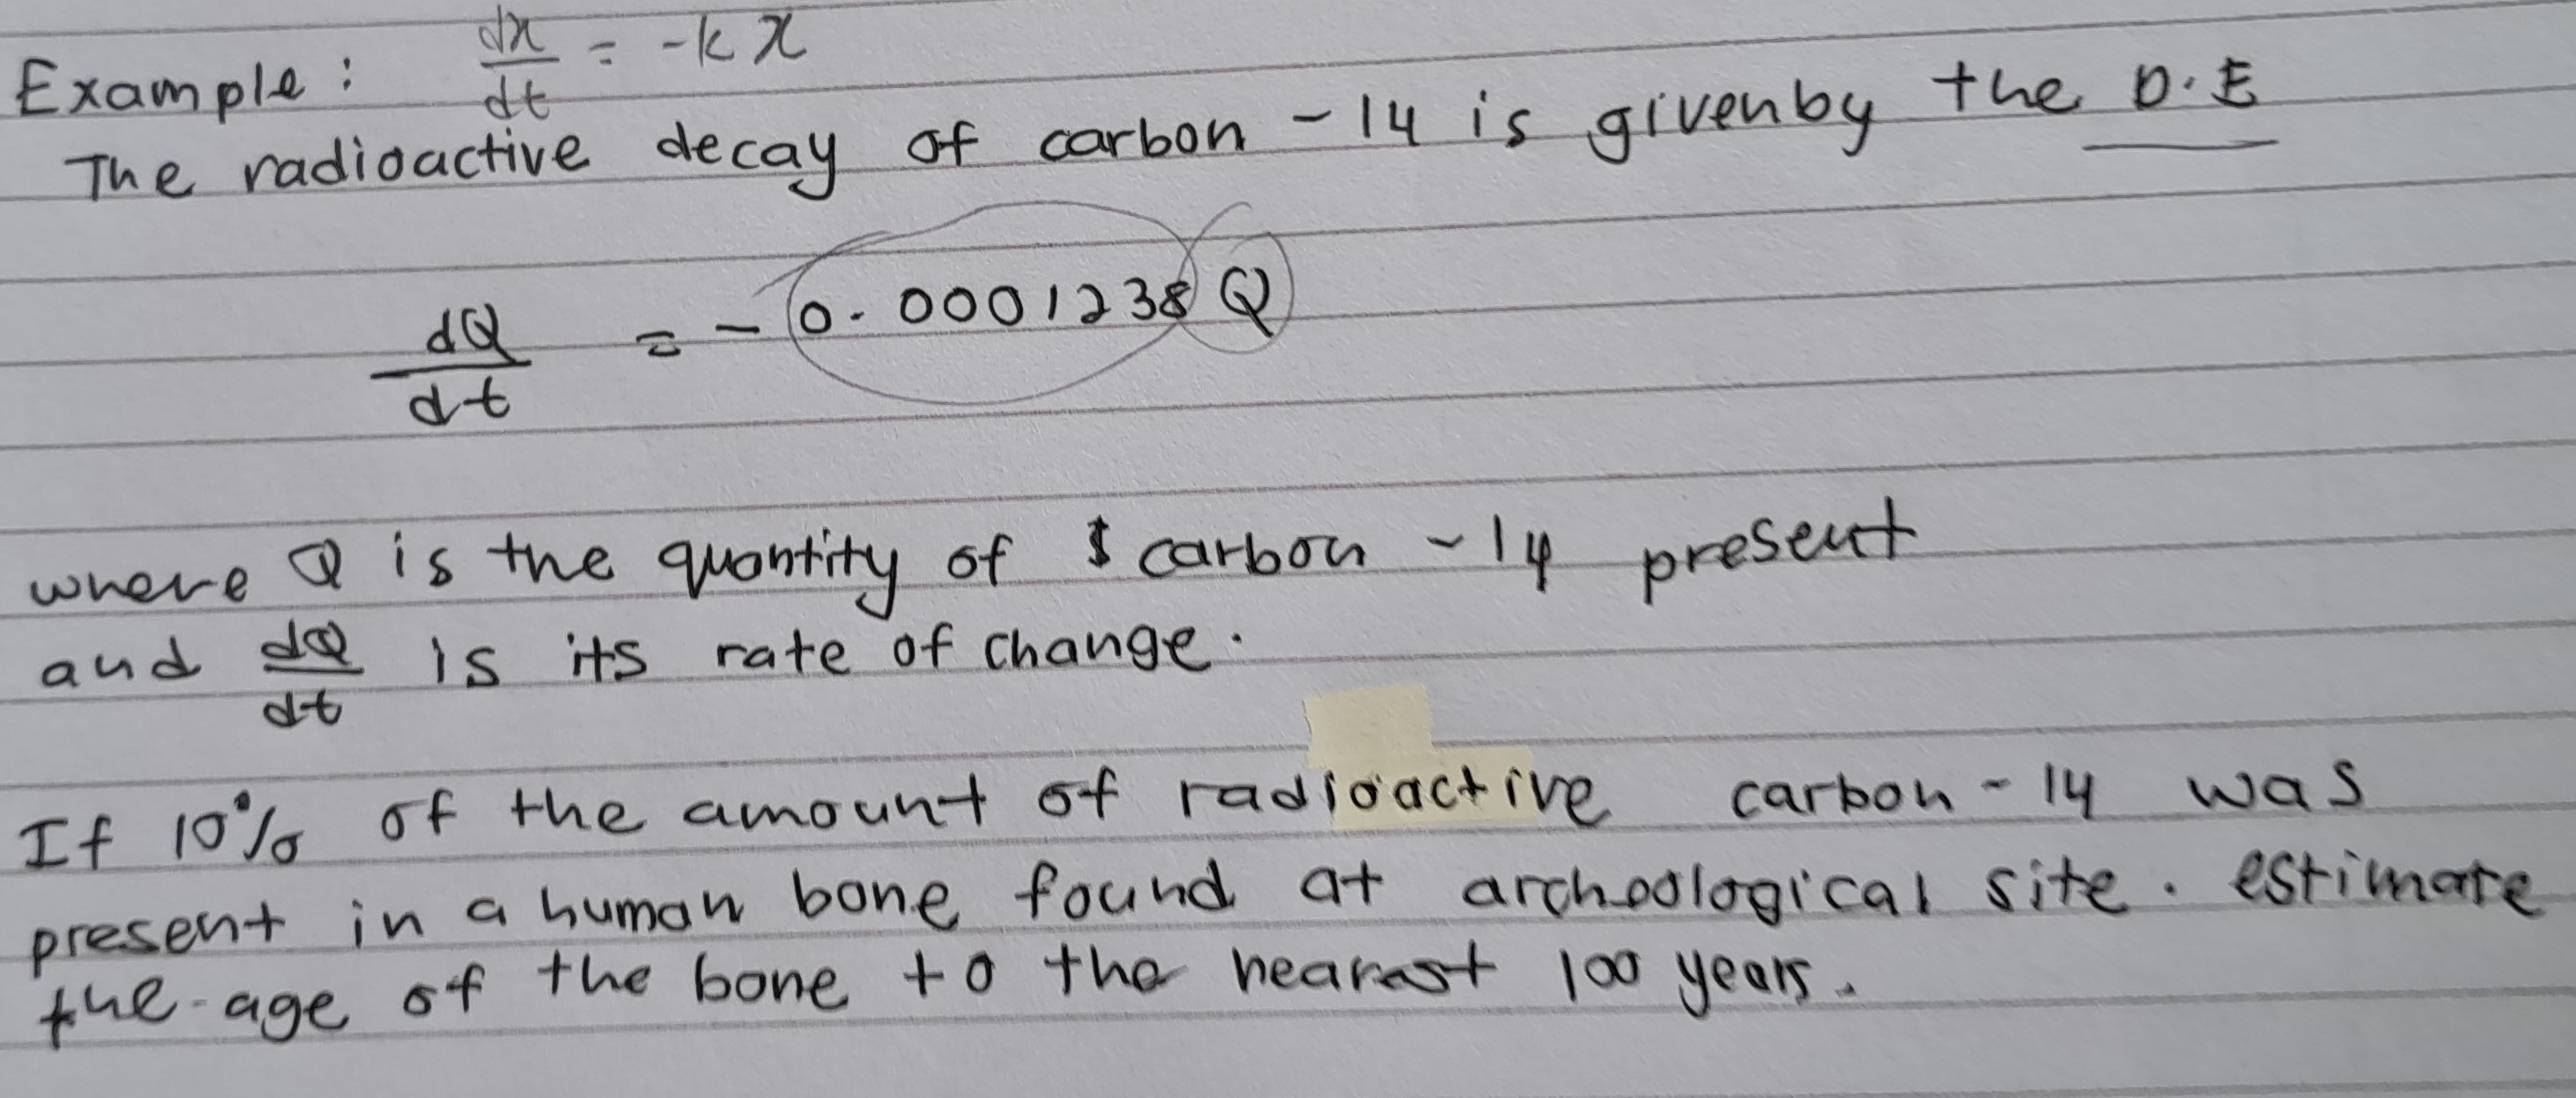 Example: dx/dt = -kx
The radioactive decay of carbon-14 is given by the D.E
dQ/dt = -0.0001238Q
where Q is the quantity of carbon-14 present
and dQ/dt is its rate of change.
If 10% of the amount of radioactive carbon-14 was
present in a human bone found at archeological site. estimate
the age of the bone to the nearest 100 years.